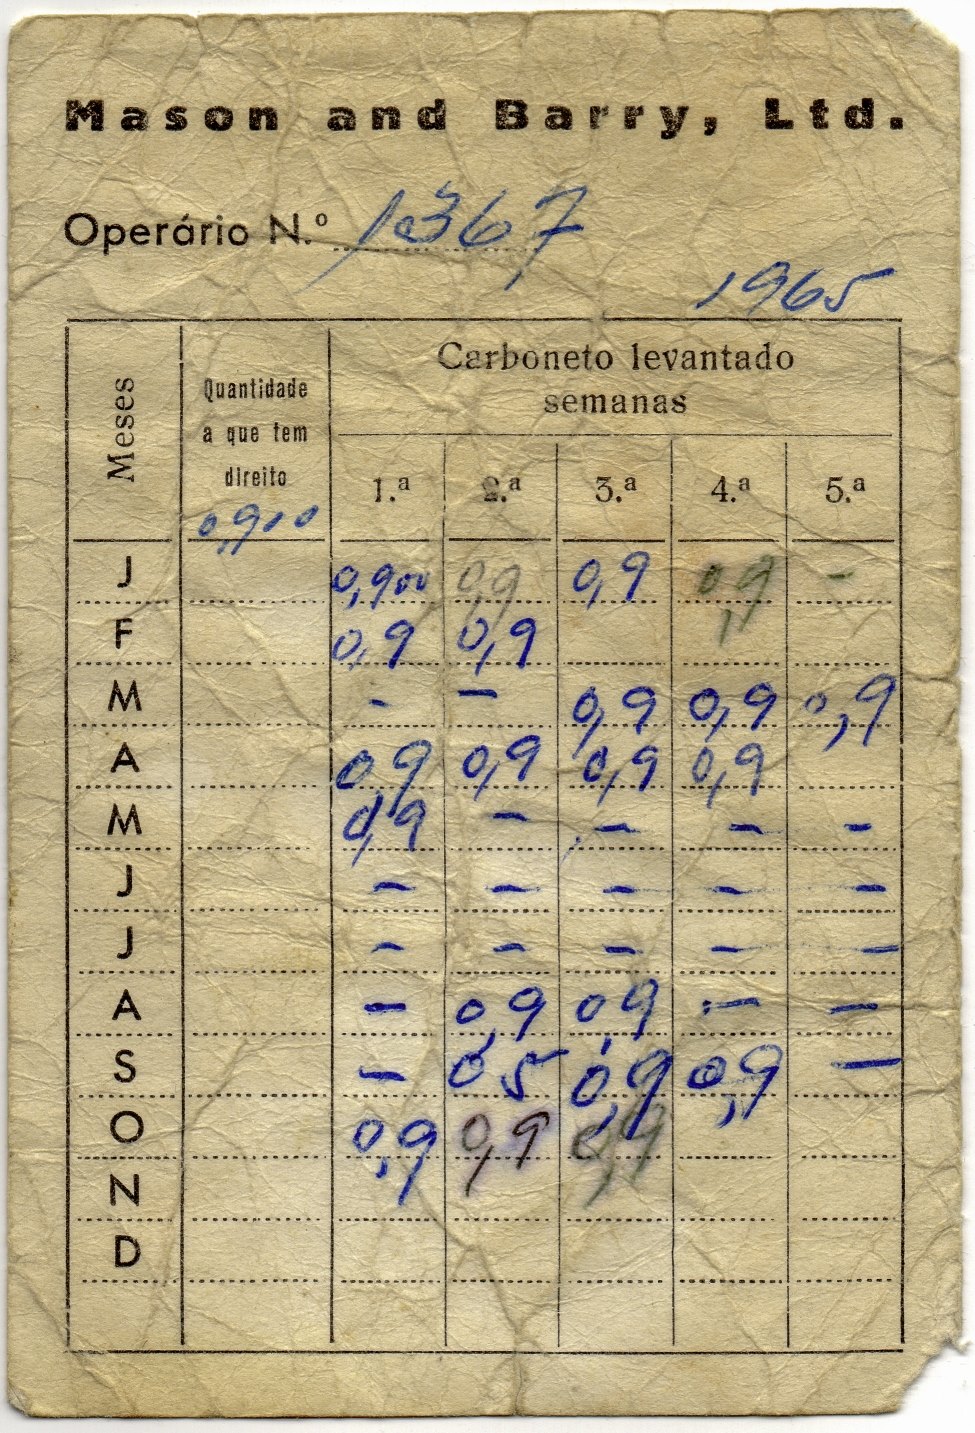 Mason and Barry, Ltd.
Operário N.º 1367
1965
Meses
Quantidade
a que tem
direito
0,900
Carboneto levantado
semanas
1.ª 2.ª 3.ª 4.ª 5.ª
J 0,900 0,9 0,9 0,9 -
F 0,9 0,9
M - - 0,9 0,9 0,9
A 0,9 0,9 0,9 0,9
M 0,9 - - - -
J - - - - -
J - - - - -
A - 0,9 0,9 - -
S - 0,5 0,9 0,9 -
O 0,9 0,9 0,9
N
D